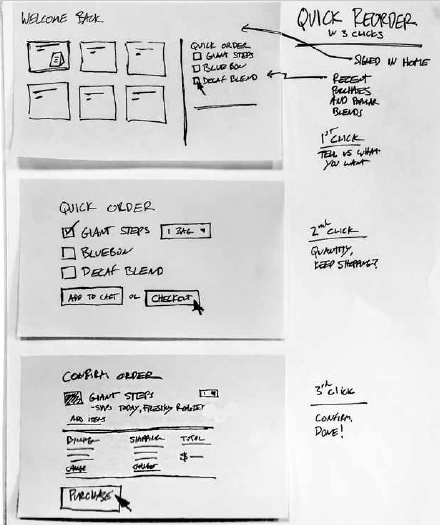 WELCOME BACK
QUICK ORDER
GIANT STEPS
BLUEBON
DECAF BLEND
QUICK REORDER
W 3 CLICKS
SIGNED IN HOME
RECENT
PURCHASES
AND POPULAR
BLENDS
1ST CLICK
TELL US WHAT
YOU WANT
QUICK ORDER
GIANT STEPS 1 BAG
BLUEBON
DECAF BLEND
ADD TO CART OR CHECKOUT
2nd CLICK
QUANTITY,
KEEP SHOPPING?
CONFIRM ORDER
GIANT STEPS 1
-SHIPS TODAY, FRESHLY ROASTED
ADD ITEMS
BILLING SHIPPING TOTAL
$—
CHANGE CHANGE
PURCHASE
3rd CLICK
CONFIRM,
DONE!